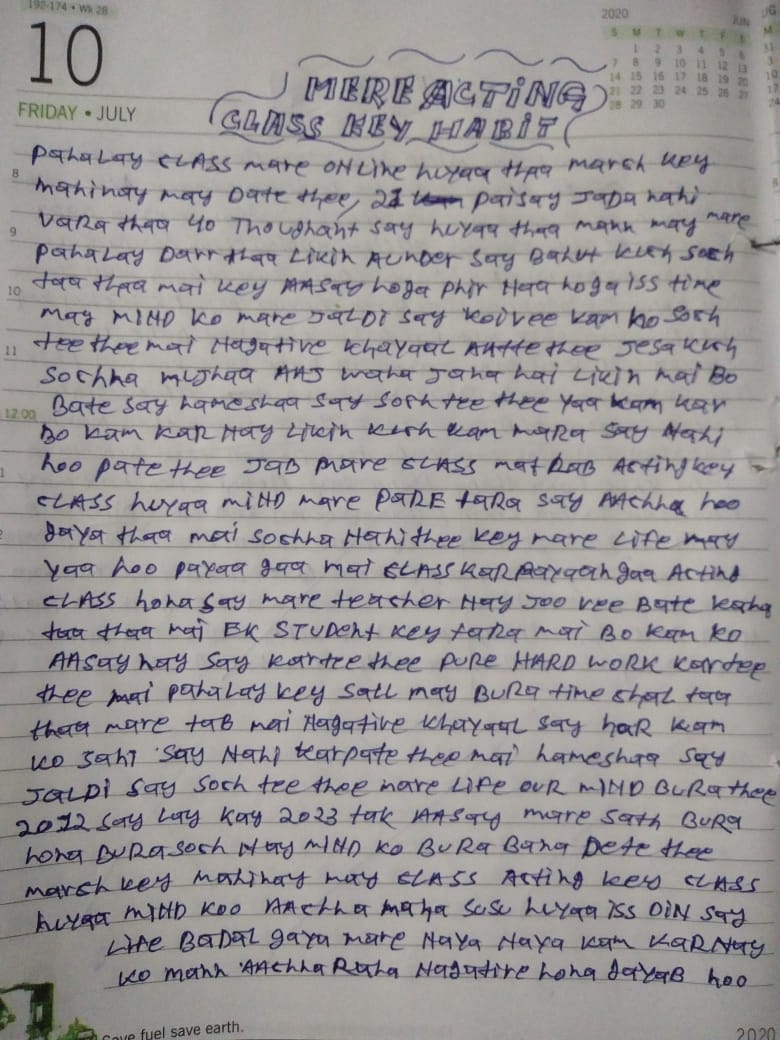 192-174 • Wk 28
10
FRIDAY • JULY
2020
JUN
S M T W T F S
1 2 3 4 5 6
7 8 9 10 11 12 13
14 15 16 17 18 19 20
21 22 23 24 25 26 27
28 29 30
MERE ACTiNG
CLASS KEY HABiT
PahaLay CLASS mare ONLine huyaa thaa marsh key
8
mahinay may Date thee, 21 paisay JaDa nahi
VaRa thaa 40 Thoughant say huyaa thaa mann may mare
9
PahaLay Darr thaa Likin AUNDER Say Bahut kush soch
10
taa thaa mai key AASay hoga phir Naa hoga iss time
may MiND ko mare JaLDi say koi vee kam ko sosh
11
tee thee mai Nagative khayaal AAtte thee Jesa kush
Sochna mujhaa AAJ waha Jana hai Likin mai Bo
12.00
Bate say hameshaa say sosh tee thee yaa kam kar
Bo kam kaR Nay Likin kush kam maRa say Nahi
1
hoo pate thee JaB mare CLASS matLaB Acting key
CLASS huyaa miND mare PaRE taRa say AAchha hoo
gaya thaa mai soshna Nahi thee key mare Life may
yaa hoo payaa gaa mai CLASS kar paayaangaa Acting
CLASS hona say mare teacher Nay Joo vee Bate kaha
taa thaa mai EK STUDent key taRa mai Bo kam ko
AASay hay say kartee thee PURE HARD WORK kartee
thee mai pahaLay key saLL may BuRa time chaL taa
thaa mare taB mai Nagative khayaaL say haR kam
ko sahi say Nahi karpate thee mai hameshaa say
JaLDi say soch tee thee mare Life ouR miND BuRa thee
2012 say Lay kay 2023 tak AASay mare sath BuRa
hona BuRa soch Nay miND ko BuRa Bana Dete thee
marsh key mahinay may CLASS Acting key CLASS
huyaa miND koo AAchha maha susu huyaa iss DiN say
Life BaDaL gaya mare Naya Naya kam kaR Nay
ko mann AAchha Raha Nagative hona gayaB hoo
Save fuel save earth.
2020